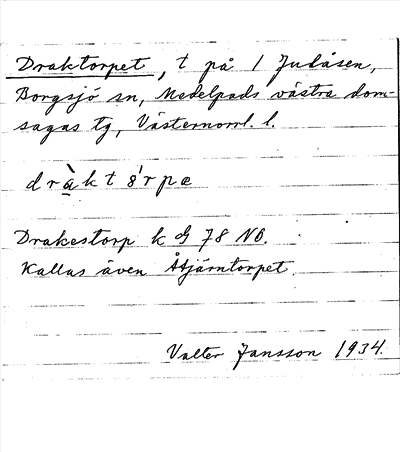 Draktorpet, t på 1 Julåsen,
Borgsjö sn, Medelpads västra dom-
sagas tg, Västernorrl. l.
dràkt s'rpæ
Drakestorp k 78 NO.
Kallas även Åtjärntorpet.
Valter Jansson 1934.